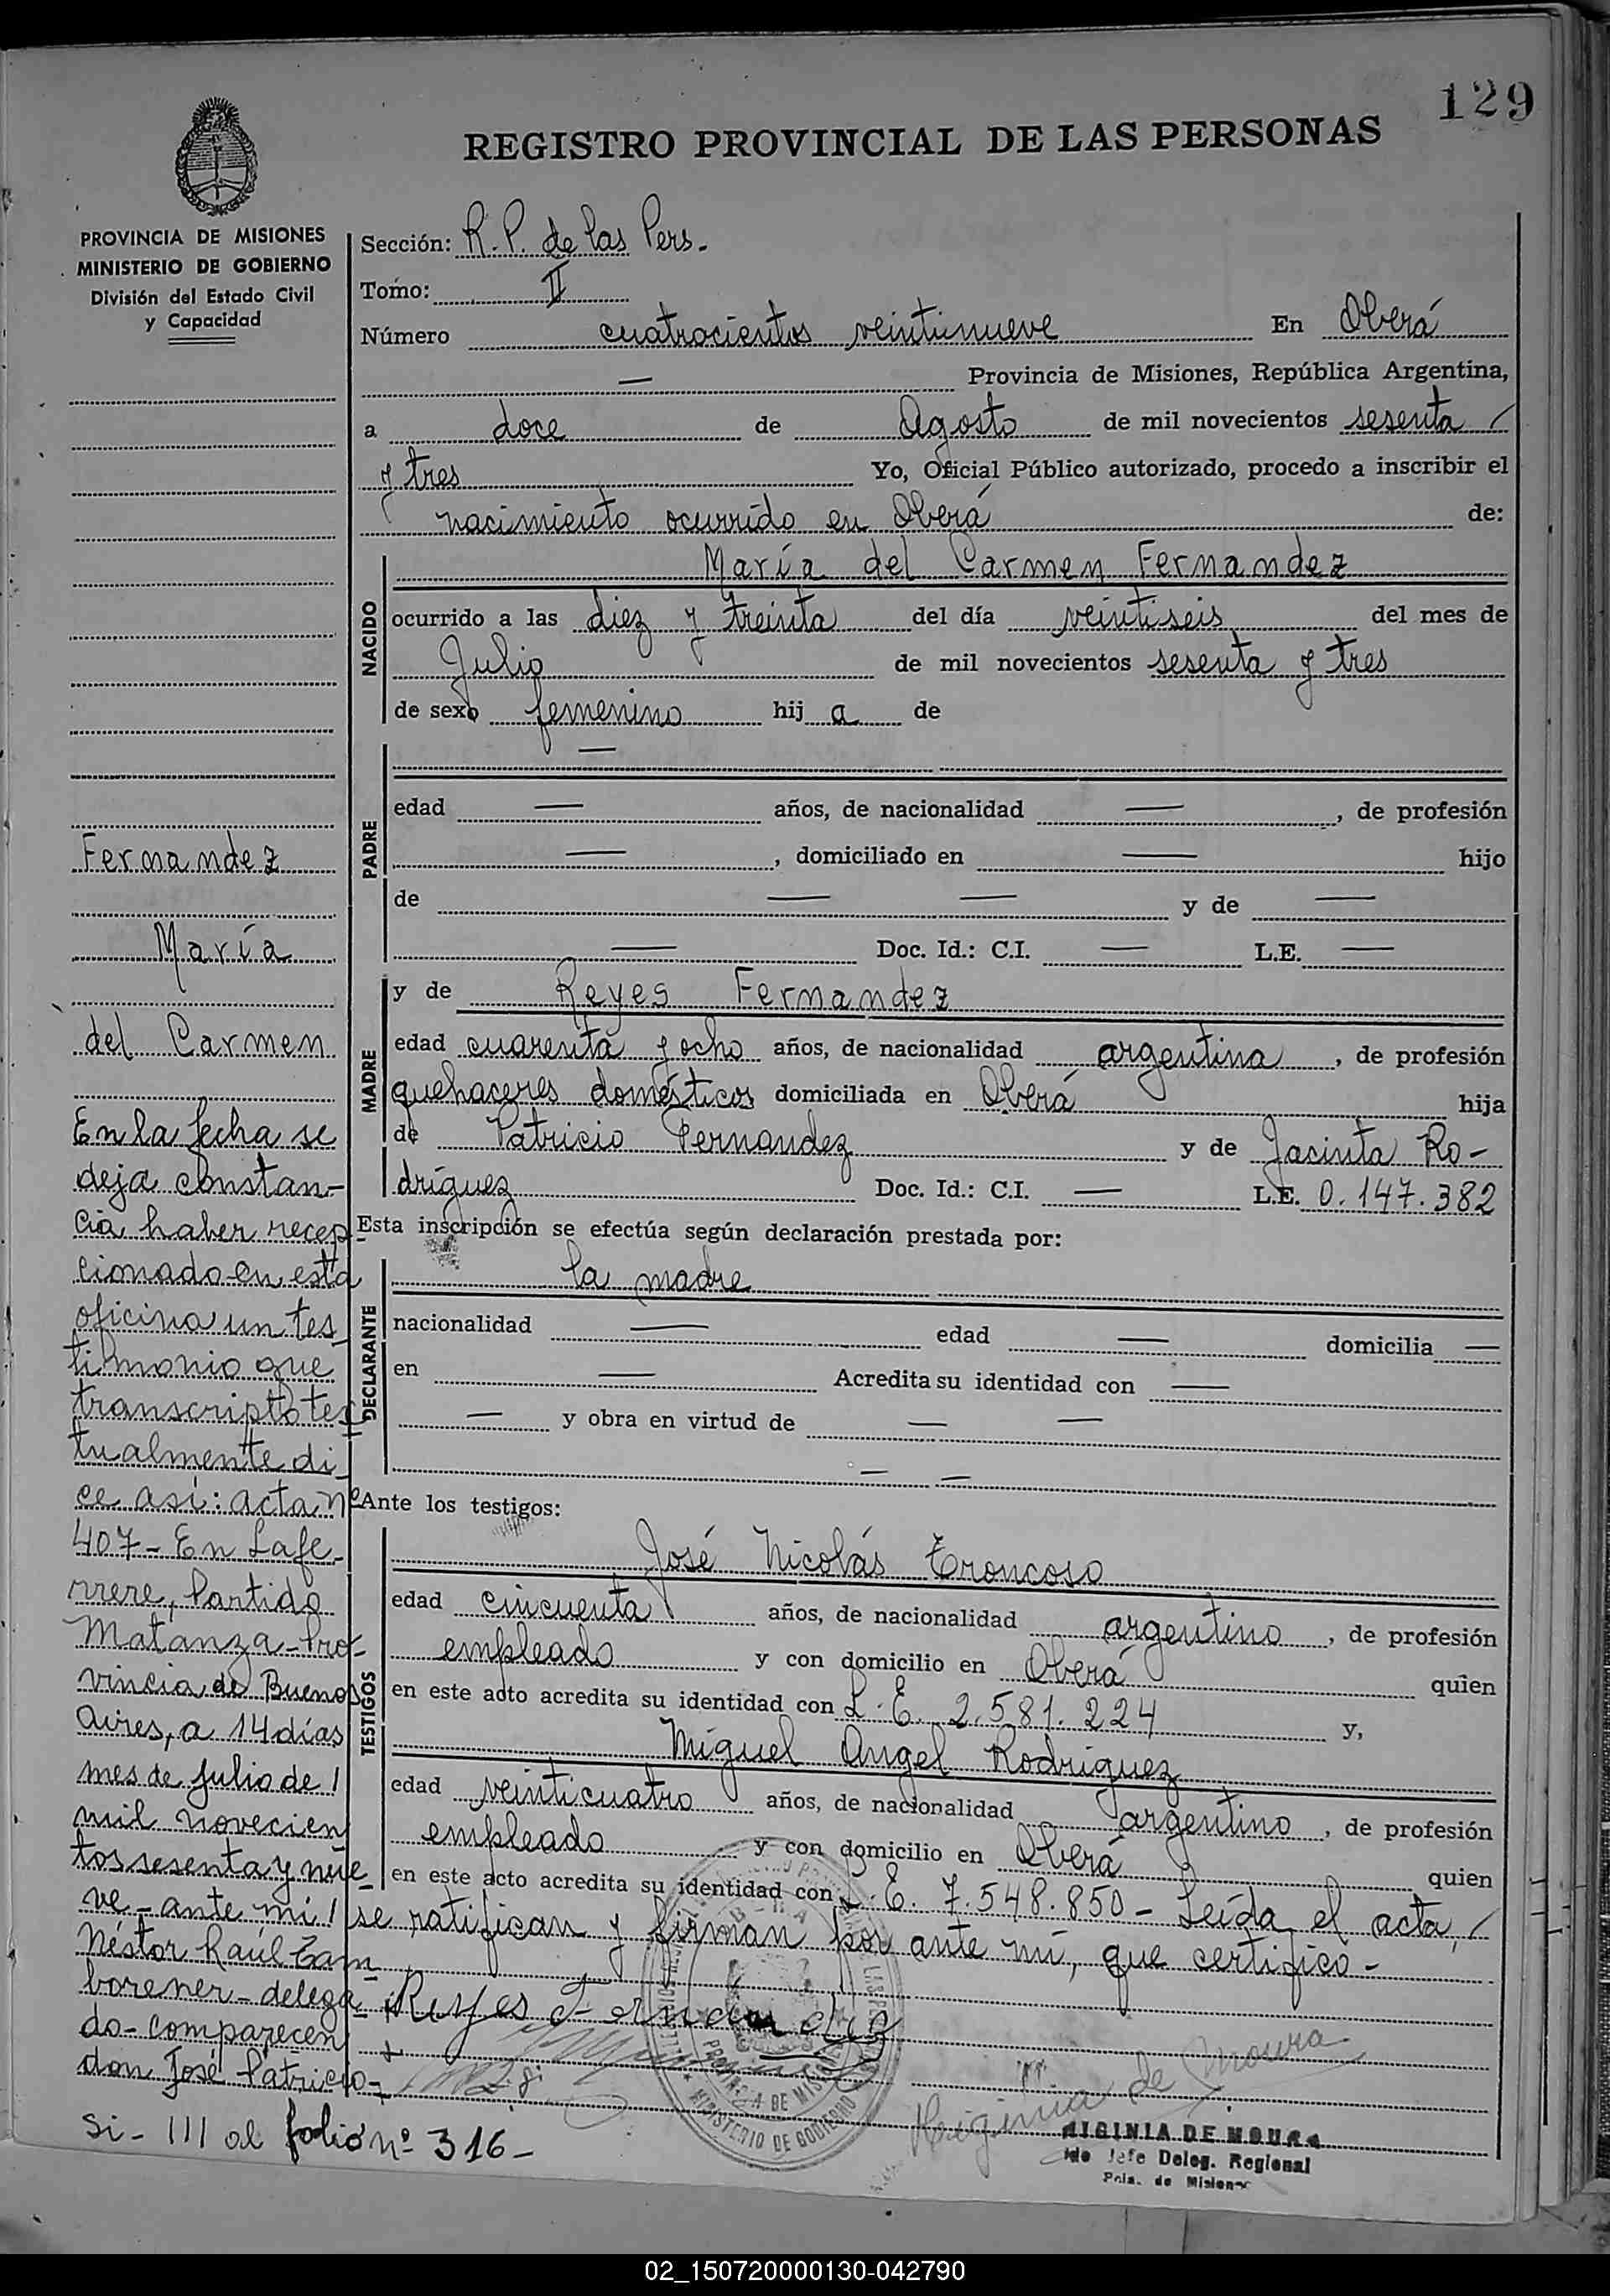 129
REGISTRO PROVINCIAL DE LAS PERSONAS
PROVINCIA DE MISIONES
MINISTERIO DE GOBIERNO
División del Estado Civil
y Capacidad
Sección: R. P. de las Pers.
Tomo: II
Número cuatrocientos veintinueve En Oberá
— Provincia de Misiones, República Argentina,
a doce de Agosto de mil novecientos sesenta /
y tres Yo, Oficial Público autorizado, procedo a inscribir el
nacimiento ocurrido en Oberá de:
NACIDO
María del Carmen Fernandez
ocurrido a las diez y treinta del día veintiseis del mes de
Julio de mil novecientos sesenta y tres
de sexo femenino hij a de
PADRE
—
edad — años, de nacionalidad —, de profesión
—, domiciliado en — hijo
de — — y de —
— Doc. Id.: C.I. — L.E. —
MADRE
y de Reyes Fernandez
edad cuarenta y ocho años, de nacionalidad argentina, de profesión
quehaceres domésticos domiciliada en Oberá hija
de Patricio Fernandez y de Jacinta Ro-
dríguez Doc. Id.: C.I. — L.E. 0.147.382
Esta inscripción se efectúa según declaración prestada por:
DECLARANTE
la madre
nacionalidad — edad — domicilia —
en — Acredita su identidad con —
— y obra en virtud de — —
— —
Ante los testigos:
TESTIGOS
José Nicolás Troncoso
edad cincuenta años, de nacionalidad argentino, de profesión
empleado y con domicilio en Oberá quien
en este acto acredita su identidad con L. E. 2.581.224 y,
Miguel Angel Rodriguez
edad veinticuatro años, de nacionalidad argentino, de profesión
empleado y con domicilio en Oberá quien
en este acto acredita su identidad con L. E. 7.548.850 - Leída el acta, /
se ratifican y firman por ante mí, que certifico -
Reyes Fernandez
Higinia de Moura
HIGINIA DE MOURA
Jefe Deleg. Regional
Pcia. de Misiones
MINISTERIO DE GOBIERNO
PROVINCIA DE MISIONES
Fernandez
María
del Carmen
En la fecha se
deja constan-
cia haber recep
cionado en esta
oficina un tes_
timonio que
transcripto tex
tualmente di_
ce así: acta nº
407 - En Lafe_
rrere, Partido
Matanza - Pro_
vincia de Buenos
Aires, a 14 días
mes de Julio de /
mil novecien
tos sesenta y nue_
ve - ante mí /
Néstor Raúl Tam_
borener - delega_
do - comparecen
don José Patricio -
Si - III al folio nº 316 -
02_150720000130-042790